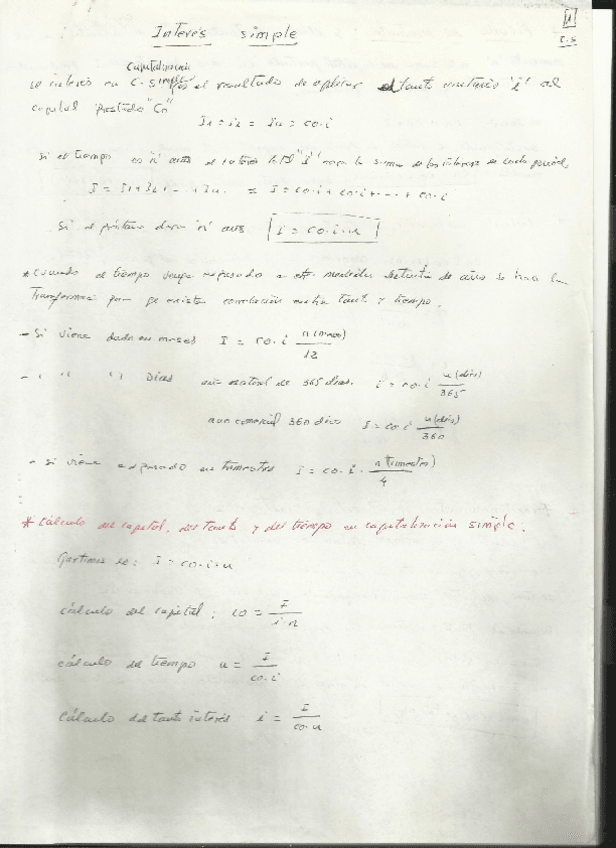 1
C.S
Interés simple
Capitalización
se interés en C. Simple es el resultado de aplicar el tanto unitario "i" al
capital prestado "Co"
I1 = i2 = In = co·i
Si el tiempo es n años el interés total "I" será la suma de los intereses de cada periodo
I = I1 + I2 + - - + In. = I = co·i + co·i + - - - + co·i
Si el préstamo dura n años I = co·i·n
* Cuando el tiempo venga expresado a otra medida distinta de años se hará la
transformación para que exista correlación entre tanto y tiempo.
- Si viene dado en meses I = co·i n(meses)/12
- " " " Dias año natural de 365 dias. i = co·i n(dias)/365
año comercial 360 dias I = co·i n(dias)/360
- si viene expresado en trimestres I = co·i· n(trimestres)/4
* Cálculo del capital, del tanto y del tiempo en capitalización simple.
Partimos de: I = co·i·n
cálculo del capital: co = I/i·n
cálculo del tiempo n = I/co·i
Cálculo del tanto interés i = I/co·n